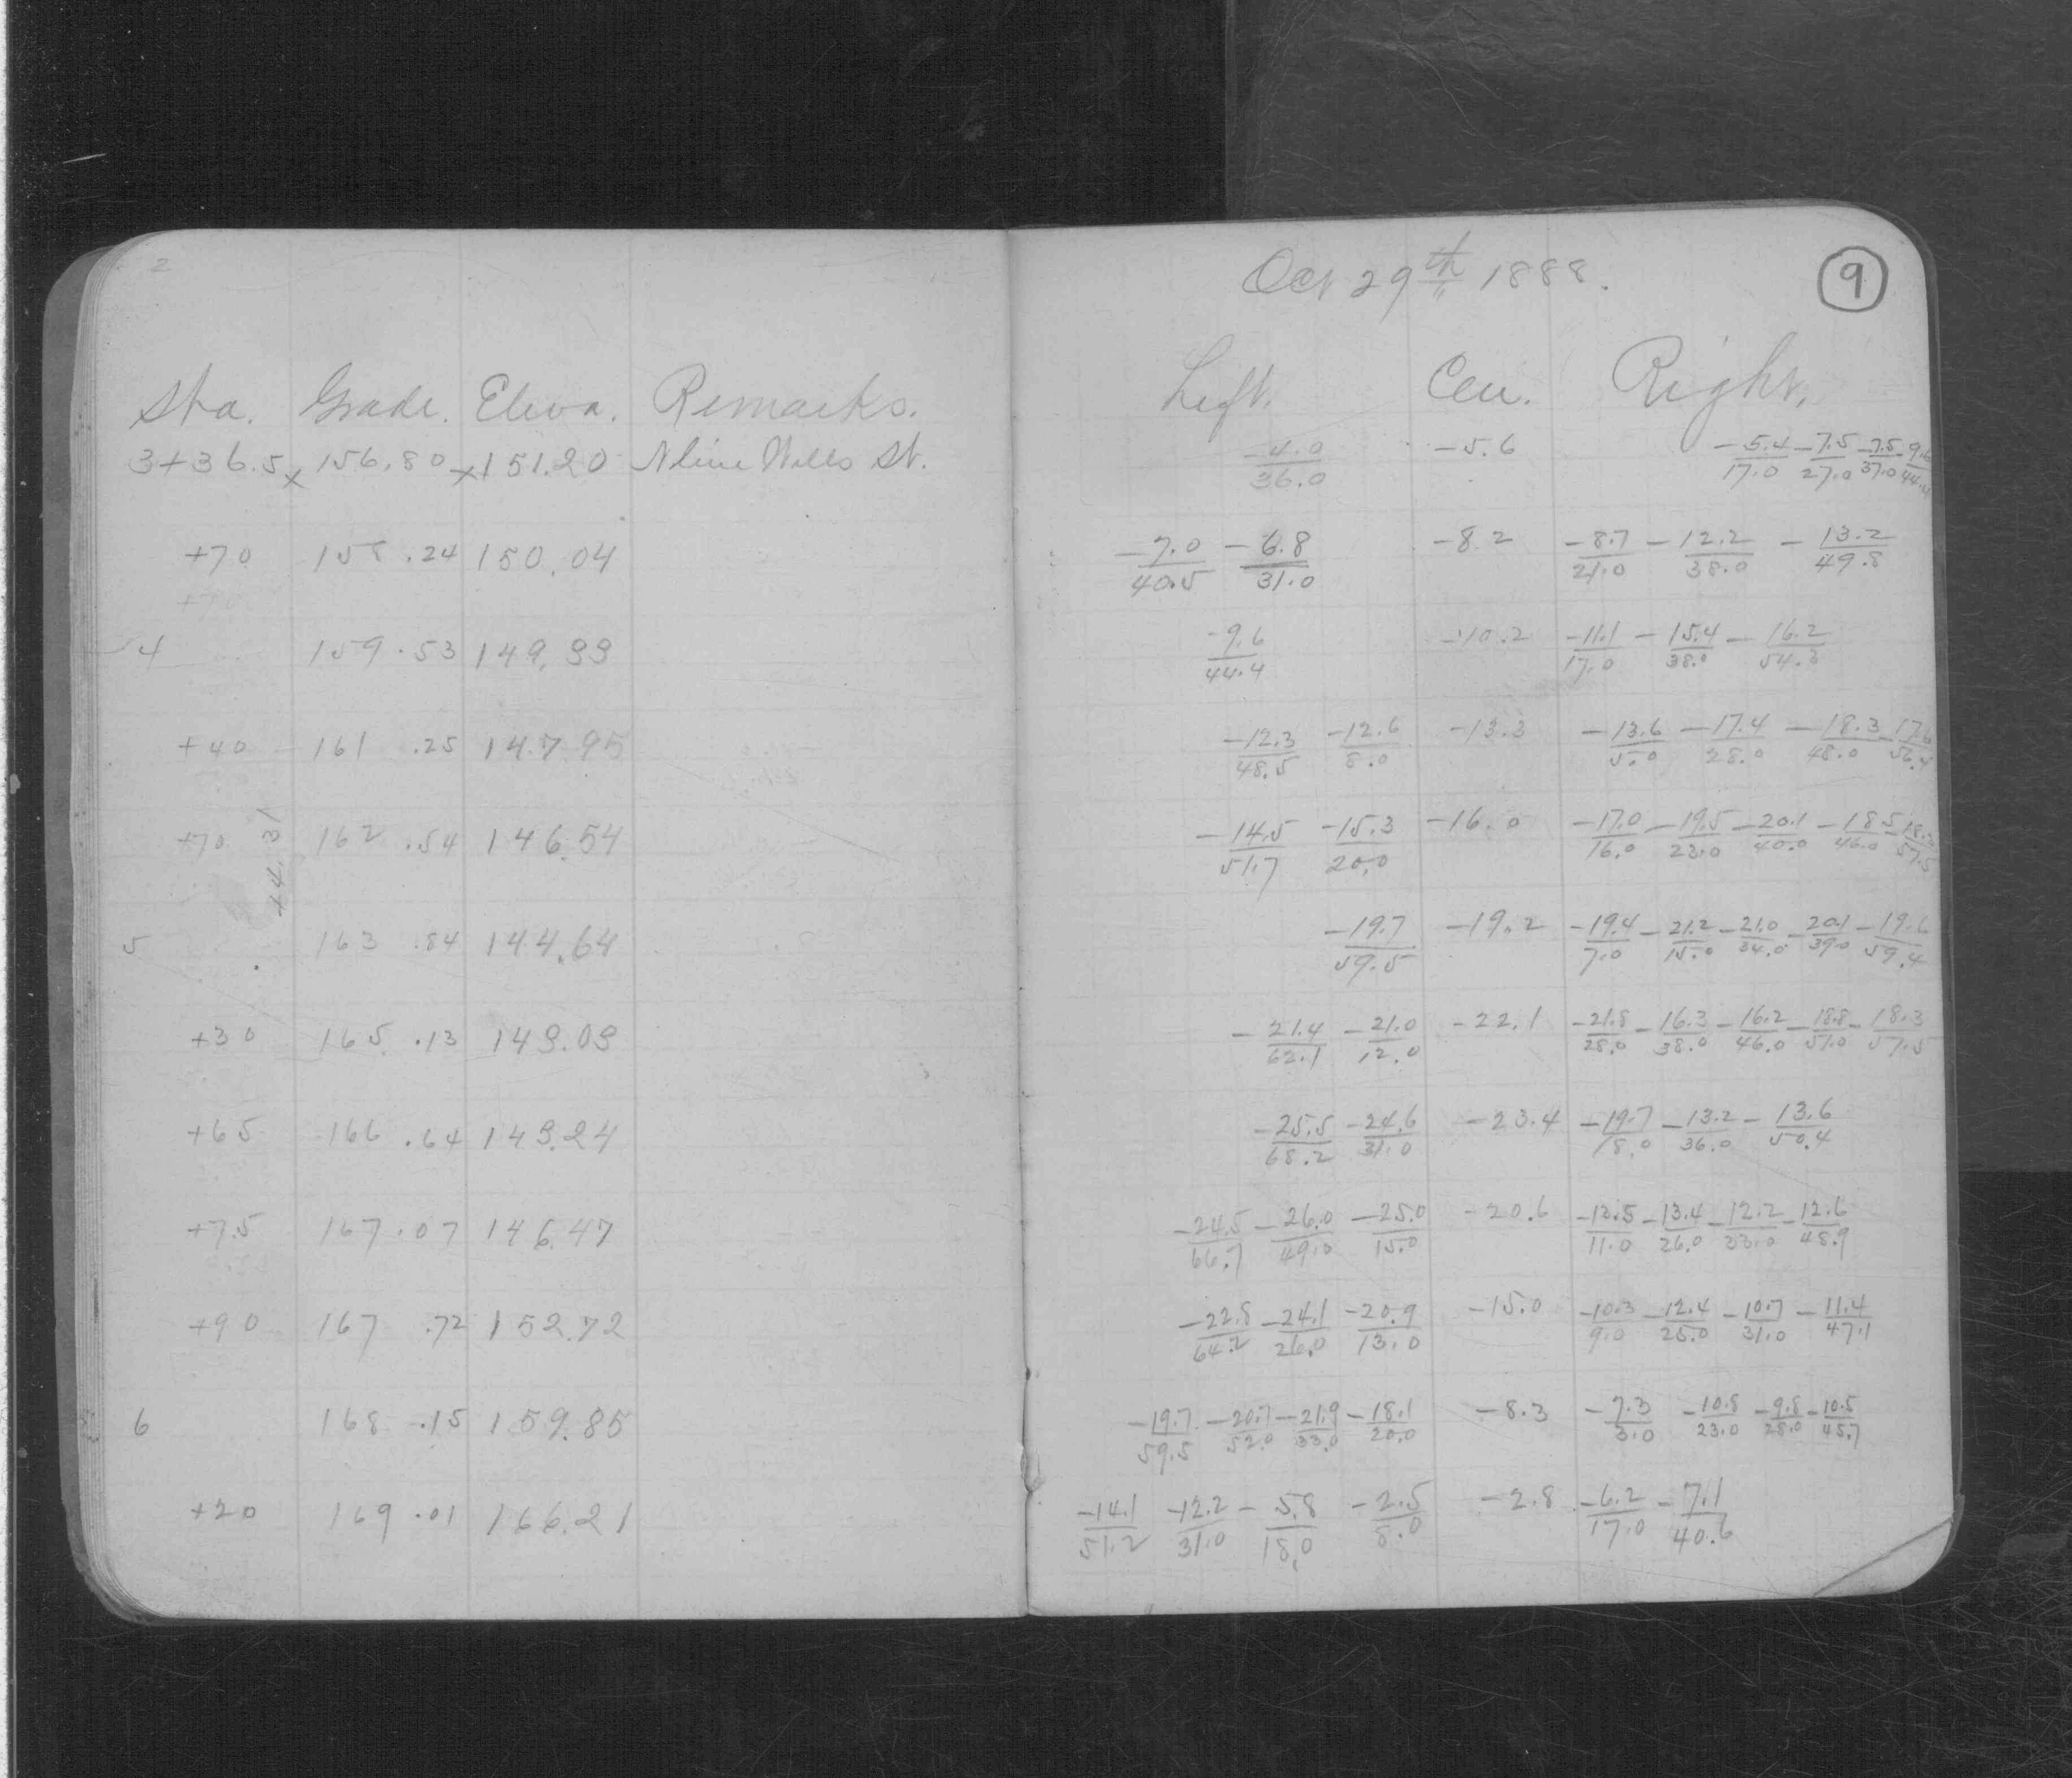 2
Sta. Grade. Eleva. Remarks.
3+36.5 x 156.80 x 151.20 N line Wells St.
+70 158.24 150.04
+70
4 159.53 149.33
+40 161.25 147.95
+70 162.54 146.54
+4.31
5 163.84 144.64
+30 165.13 143.03
+65 166.64 143.24
+75 167.07 146.47
+90 167.72 152.72
6 168.15 159.85
+20 169.01 166.21
Oct 29th 1888.
9
Left. Cen. Right.
-4.0/36.0 -5.6 -5.4/17.0 -7.5/27.0 -7.5/37.0 -9.6/44.4
-7.0/40.5 -6.8/31.0 -8.2 -8.7/21.0 -12.2/38.0 -13.2/49.8
-9.6/44.4 -10.2 -11.1/17.0 -15.4/38.0 -16.2/54.3
-12.3/48.5 -12.6/8.0 -13.3 -13.6/5.0 -17.4/28.0 -18.3/48.0 -17.6/56.4
-14.5/51.7 -15.3/20.0 -16.0 -17.0/16.0 -19.5/23.0 -20.1/40.0 -18.5/46.0 -18.3/57.5
-19.7/59.5 -19.2 -19.4/7.0 -21.2/15.0 -21.0/34.0 -20.1/39.0 -19.6/59.4
-21.4/62.1 -21.0/12.0 -22.1 -21.8/28.0 -16.3/38.0 -16.2/46.0 -18.8/51.0 -18.3/57.5
-25.5/68.2 -24.6/31.0 -23.4 -19.7/18.0 -13.2/36.0 -13.6/50.4
-24.5/66.7 -26.0/49.0 -25.0/15.0 -20.6 -13.5/11.0 -13.4/26.0 -12.2/33.0 -12.6/48.9
-22.8/64.2 -24.1/26.0 -20.9/13.0 -15.0 -10.3/9.0 -12.4/25.0 -10.7/31.0 -11.4/47.1
-19.7/59.5 -20.7/52.0 -21.9/33.0 -18.1/20.0 -8.3 -7.3/3.0 -10.8/23.0 -9.8/28.0 -10.5/45.7
-14.1/51.2 -12.2/31.0 -5.8/18.0 -2.5/8.0 -2.8 -6.2/17.0 -7.1/40.6